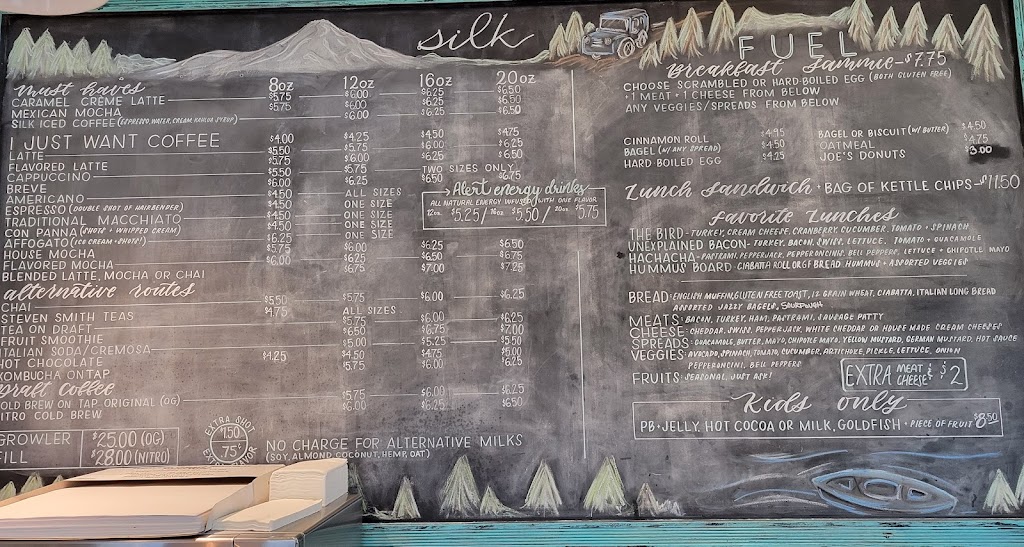 silk
must haves 8oz 12oz 16oz 20oz
CARAMEL CRÈME LATTE $5.75 $6.00 $6.25 $6.50
MEXICAN MOCHA $5.75 $6.00 $6.25 $6.50
SILK ICED COFFEE (ESPRESSO, WATER, CREAM, KAHLUA SYRUP) $6.00 $6.25 $6.50
I JUST WANT COFFEE $4.00 $4.25 $4.50 $4.75
LATTE $5.50 $5.75 $6.00 $6.25
FLAVORED LATTE $5.75 $6.00 $6.25 $6.50
CAPPUCCINO $5.50 $5.75 TWO SIZES ONLY
BREVE $6.00 $6.25 $6.50 $6.75
AMERICANO $4.50 ALL SIZES
ESPRESSO (DOUBLE SHOT OF HAIRBENDER) $4.50 ONE SIZE
TRADITIONAL MACCHIATO $4.50 ONE SIZE
CON PANNA (SHOTS + WHIPPED CREAM) $4.50 ONE SIZE
AFFOGATO (ICE CREAM + SHOTS!) $6.25 ONE SIZE
HOUSE MOCHA $5.75 $6.00 $6.25 $6.50
FLAVORED MOCHA $6.00 $6.25 $6.50 $6.75
BLENDED LATTE, MOCHA OR CHAI $6.75 $7.00 $7.25
Alert energy drinks
ALL NATURAL ENERGY INFUSED WITH ONE FLAVOR
12oz. $5.25 / 16oz $5.50 / 20oz $5.75
alternative routes
CHAI $5.50 $5.75 $6.00 $6.25
STEVEN SMITH TEAS $4.75 ALL SIZES
TEA ON DRAFT $5.75 $6.00 $6.25
FRUIT SMOOTHIE $6.50 $6.75 $7.00
ITALIAN SODA/CREMOSA $5.00 $5.25 $5.50
HOT CHOCOLATE $4.25 $4.50 $4.75 $5.00
KOMBUCHA ON TAP $5.75 $6.00 $6.25
Draft Coffee
COLD BREW ON TAP ORIGINAL (OG) $5.75 $6.00 $6.25
NITRO COLD BREW $6.00 $6.25 $6.50
GROWLER $25.00 (OG)
FILL $28.00 (NITRO)
EXTRA SHOT
1.50
.75
NO CHARGE FOR ALTERNATIVE MILKS
(SOY, ALMOND, COCONUT, HEMP, OAT)
FUEL
Breakfast Sammie - $7.75
CHOOSE SCRAMBLED OR HARD-BOILED EGG (BOTH GLUTEN FREE)
+ 1 MEAT + 1 CHEESE FROM BELOW
ANY VEGGIES/SPREADS FROM BELOW
CINNAMON ROLL $4.95
BAGEL (W/ ANY SPREAD) $4.50
HARD-BOILED EGG $4.25
BAGEL OR BISCUIT (W/ BUTTER) $4.50
OATMEAL $4.75
JOE'S DONUTS $3.00
Lunch Sandwich + BAG OF KETTLE CHIPS - $11.50
Favorite Lunches
THE BIRD - TURKEY, CREAM CHEESE, CRANBERRY, CUCUMBER, TOMATO + SPINACH
UNEXPLAINED BACON - TURKEY, BACON, SWISS, LETTUCE, TOMATO + GUACAMOLE
HACHACHA - PASTRAMI, PEPPERJACK, PEPPERONCINIS, BELL PEPPERS, LETTUCE + CHIPOTLE MAYO
HUMMUS BOARD - CIABATTA ROLL OR GF BREAD, HUMMUS + ASSORTED VEGGIES
BREAD: ENGLISH MUFFIN, GLUTEN FREE TOAST, 12 GRAIN WHEAT, CIABATTA, ITALIAN LONG BREAD
ASSORTED JAZZY BAGELS, SOURDOUGH
MEATS: BACON, TURKEY, HAM, PASTRAMI, SAUSAGE PATTY
CHEESE: CHEDDAR, SWISS, PEPPERJACK, WHITE CHEDDAR OR HOUSE MADE CREAM CHEESES
SPREADS: GUACAMOLE, BUTTER, MAYO, CHIPOTLE MAYO, YELLOW MUSTARD, GERMAN MUSTARD, HOT SAUCE
VEGGIES: AVOCADO, SPINACH, TOMATO, CUCUMBER, ARTICHOKE, PICKLE, LETTUCE, ONION
PEPPERONCINI, BELL PEPPERS
FRUITS: SEASONAL, JUST ASK!
EXTRA MEAT & CHEESE $2
Kids only
PB + JELLY, HOT COCOA OR MILK, GOLDFISH + PIECE OF FRUIT $8.50